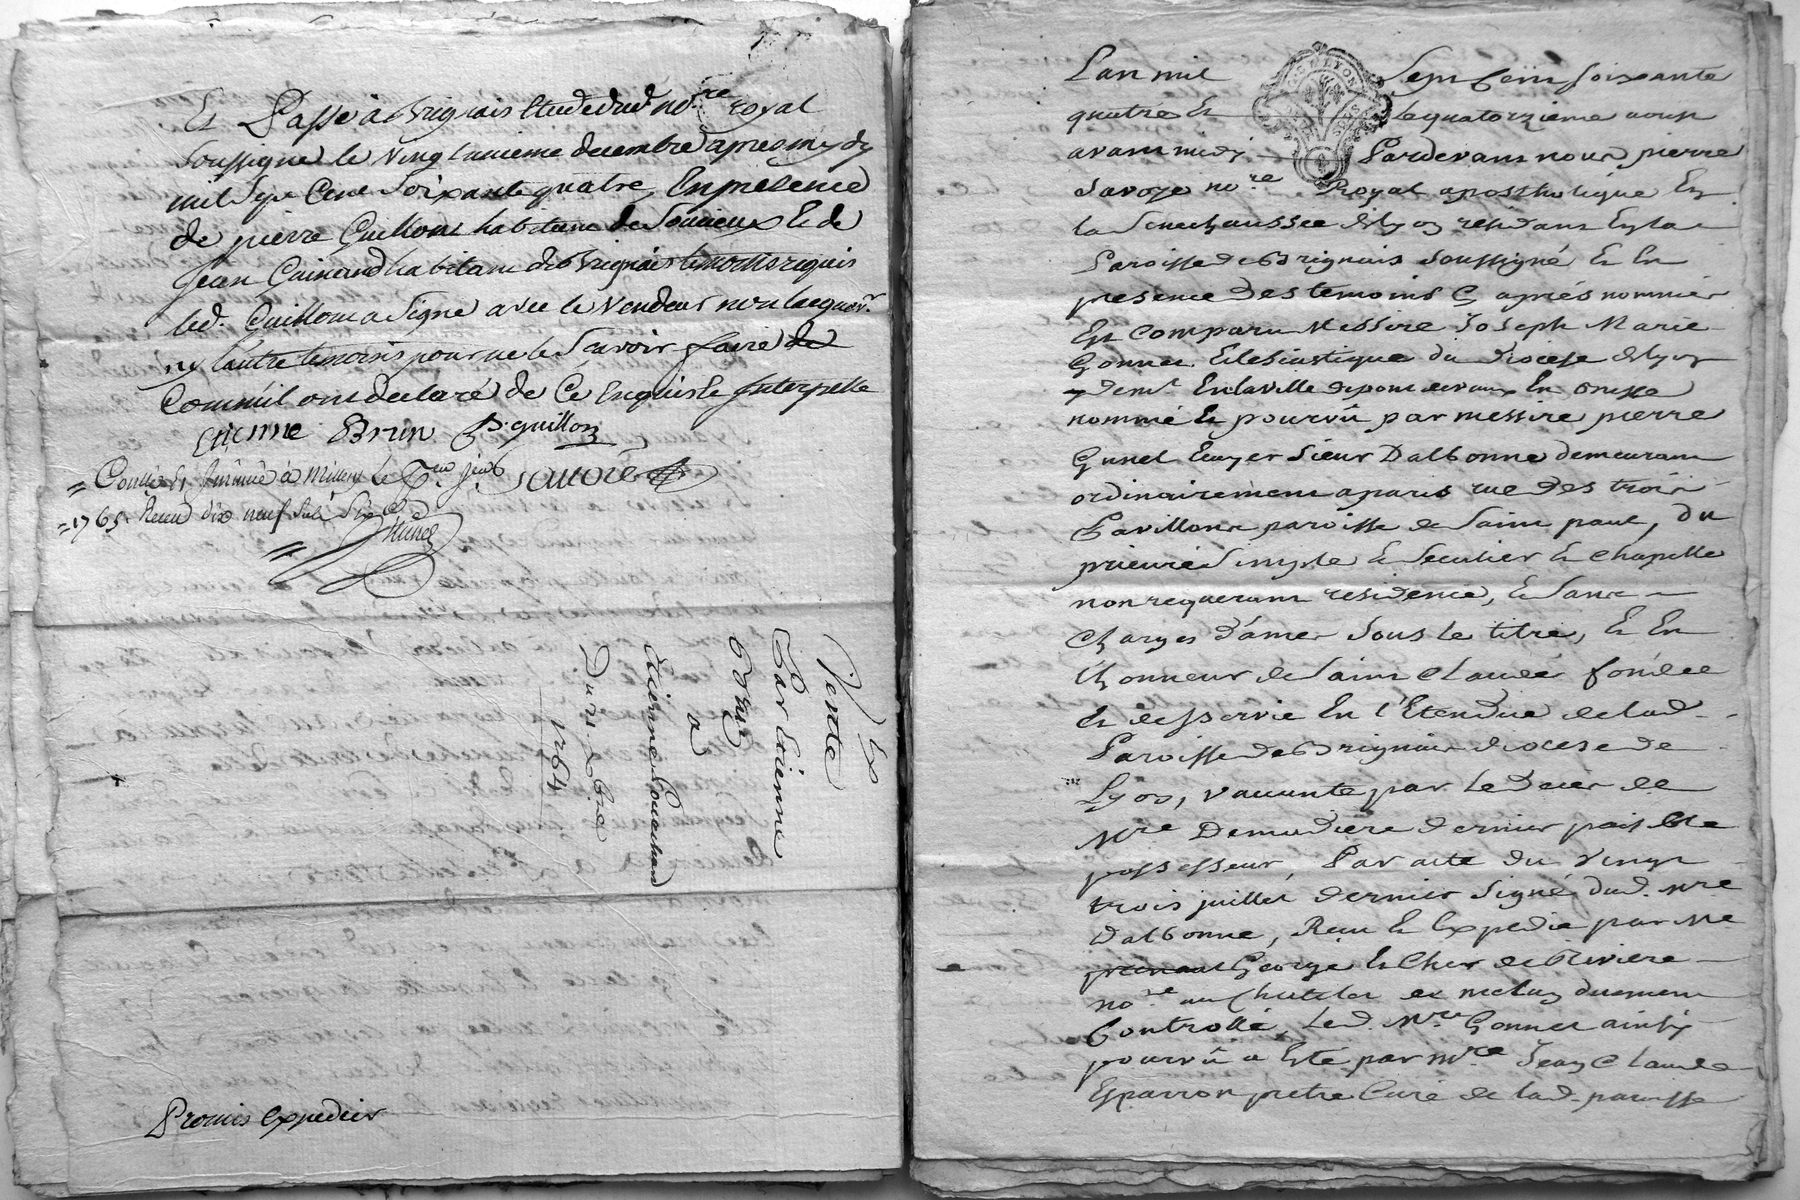 Et Passé à Brignais Etude dud. no.re royal
soussigné le vingt unieme decembre apres midy
mil sept Cent soixante quatre, En presence
de pierre Guillon habitant de Soucieux Et de
Jean Gainand habitant de Brignais temoins requis
led. Guillon a signé avec le vendeur non lacquer.r
ny lautre temoins pour ne le scavoir faire de
Comm'il ont declaré de Ce Enquis Et Interpellé
Etienne Brun P. guillon
Contlé Et Insinué à Millery le
Savoie
1765 Receu dix neuf sols six d.
Vente
Par Etienne
Brun
a
Etienne
Du 21 Xbre
1764
Promis Expedier
Lan mil Sept Cent soixante
quatre Et Le quatorzieme aoust
avant midy Pardevant nous pierre
Savoye no.re Royal apostholique En
la Senechaussée de Lyon residant En la
Paroisse de Brignais soussigné Et En
presence des temoins Cy après nommés
Est Comparu Messire Joseph Marie
Gonnet Eclesiastique du Diocese de Lyon
y dem.t En la ville de pont de vaux En Bresse
nommé Et pourvû par messire pierre
Gunet Ecuyer Sieur Dalbonne demeurant
ordinairement a paris rue des trois
Pavillons paroisse de Saint paul, du
prieuré Simple Et Seculier Et Chapelle
non requerant residence, Et Sans
Charges d'ames sous le titre, Et En
l'honneur de Saint Claude fondée
Et desservie En l'Etendue de lad.
Paroisse de Brignais diocese de
Lyon, vacante par le deces de
M.re Demadiere dernier paisible
possesseur, Par acte du vingt
trois juillet dernier signé dud. M.re
Dalbonne, Receu Et Expedié par M.e
George Et Cher de Riviere
no.re au Chatelet de Melun duement
Controllé, led. M.re Gonnet ainsy
pourvû a Eté par M.re Jean Claude
Esparron pretre Curé de lad. paroisse